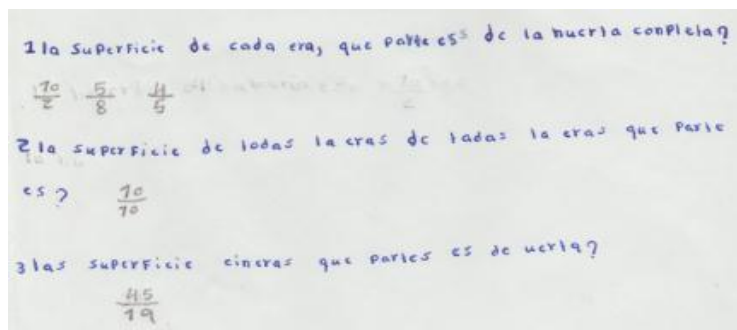 1 la superficie de cada era, que parte es de la huerta conpleta?
10/2 5/8 4/5
2 la superficie de todas la eras de tadas la eras que parte
es? 10/10
3 las superficie eineras que partes es de uerta?
45/19